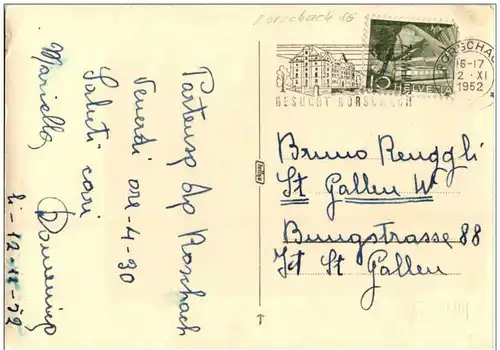 Rorschach SG
RORSCHACH
16-17
2. XI
1952
BESUCHT RORSCHACH
HELVETIA
Partenza da Roschach
Venerdi ore - 4 - 30
Saluti cari
Mariella, Domenico
li - 12-11-52
Bruno Renggli
St Gallen W
Burgstrasse 88
Jct St Gallen